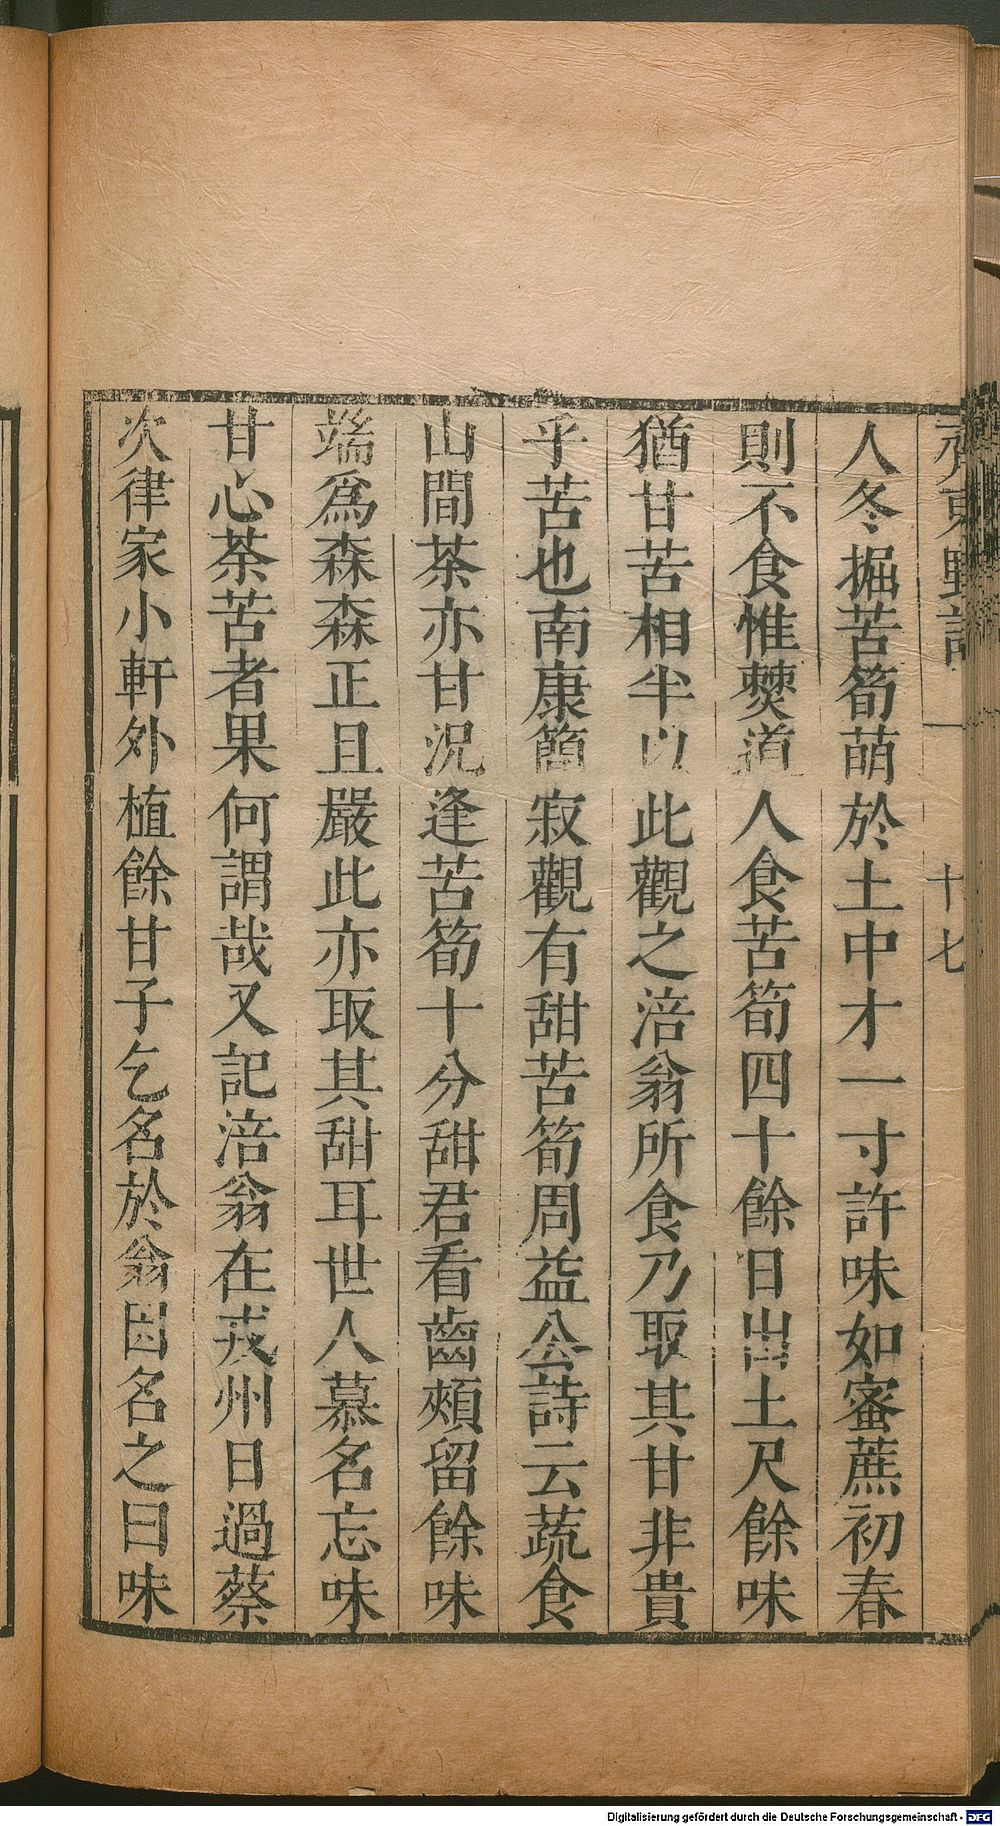 齊東野語
一
十七
人冬掘苦筍萌於土中才一寸許味如蜜蔗初春
則不食惟僰道人食苦筍四十餘日出土尺餘味
猶甘苦相半以此觀之涪翁所食乃取其甘非貴
乎苦也南康簡寂觀有甜苦筍周益公詩云蔬食
山間茶亦甘況逢苦筍十分甜君看齒頰留餘味
端爲森森正且嚴此亦取其甜耳世人慕名忘味
甘心荼苦者果何謂哉又記涪翁在戎州日過蔡
次律家小軒外植餘甘子乞名於翁因名之曰味
Digitalisierung gefördert durch die Deutsche Forschungsgemeinschaft - DFG